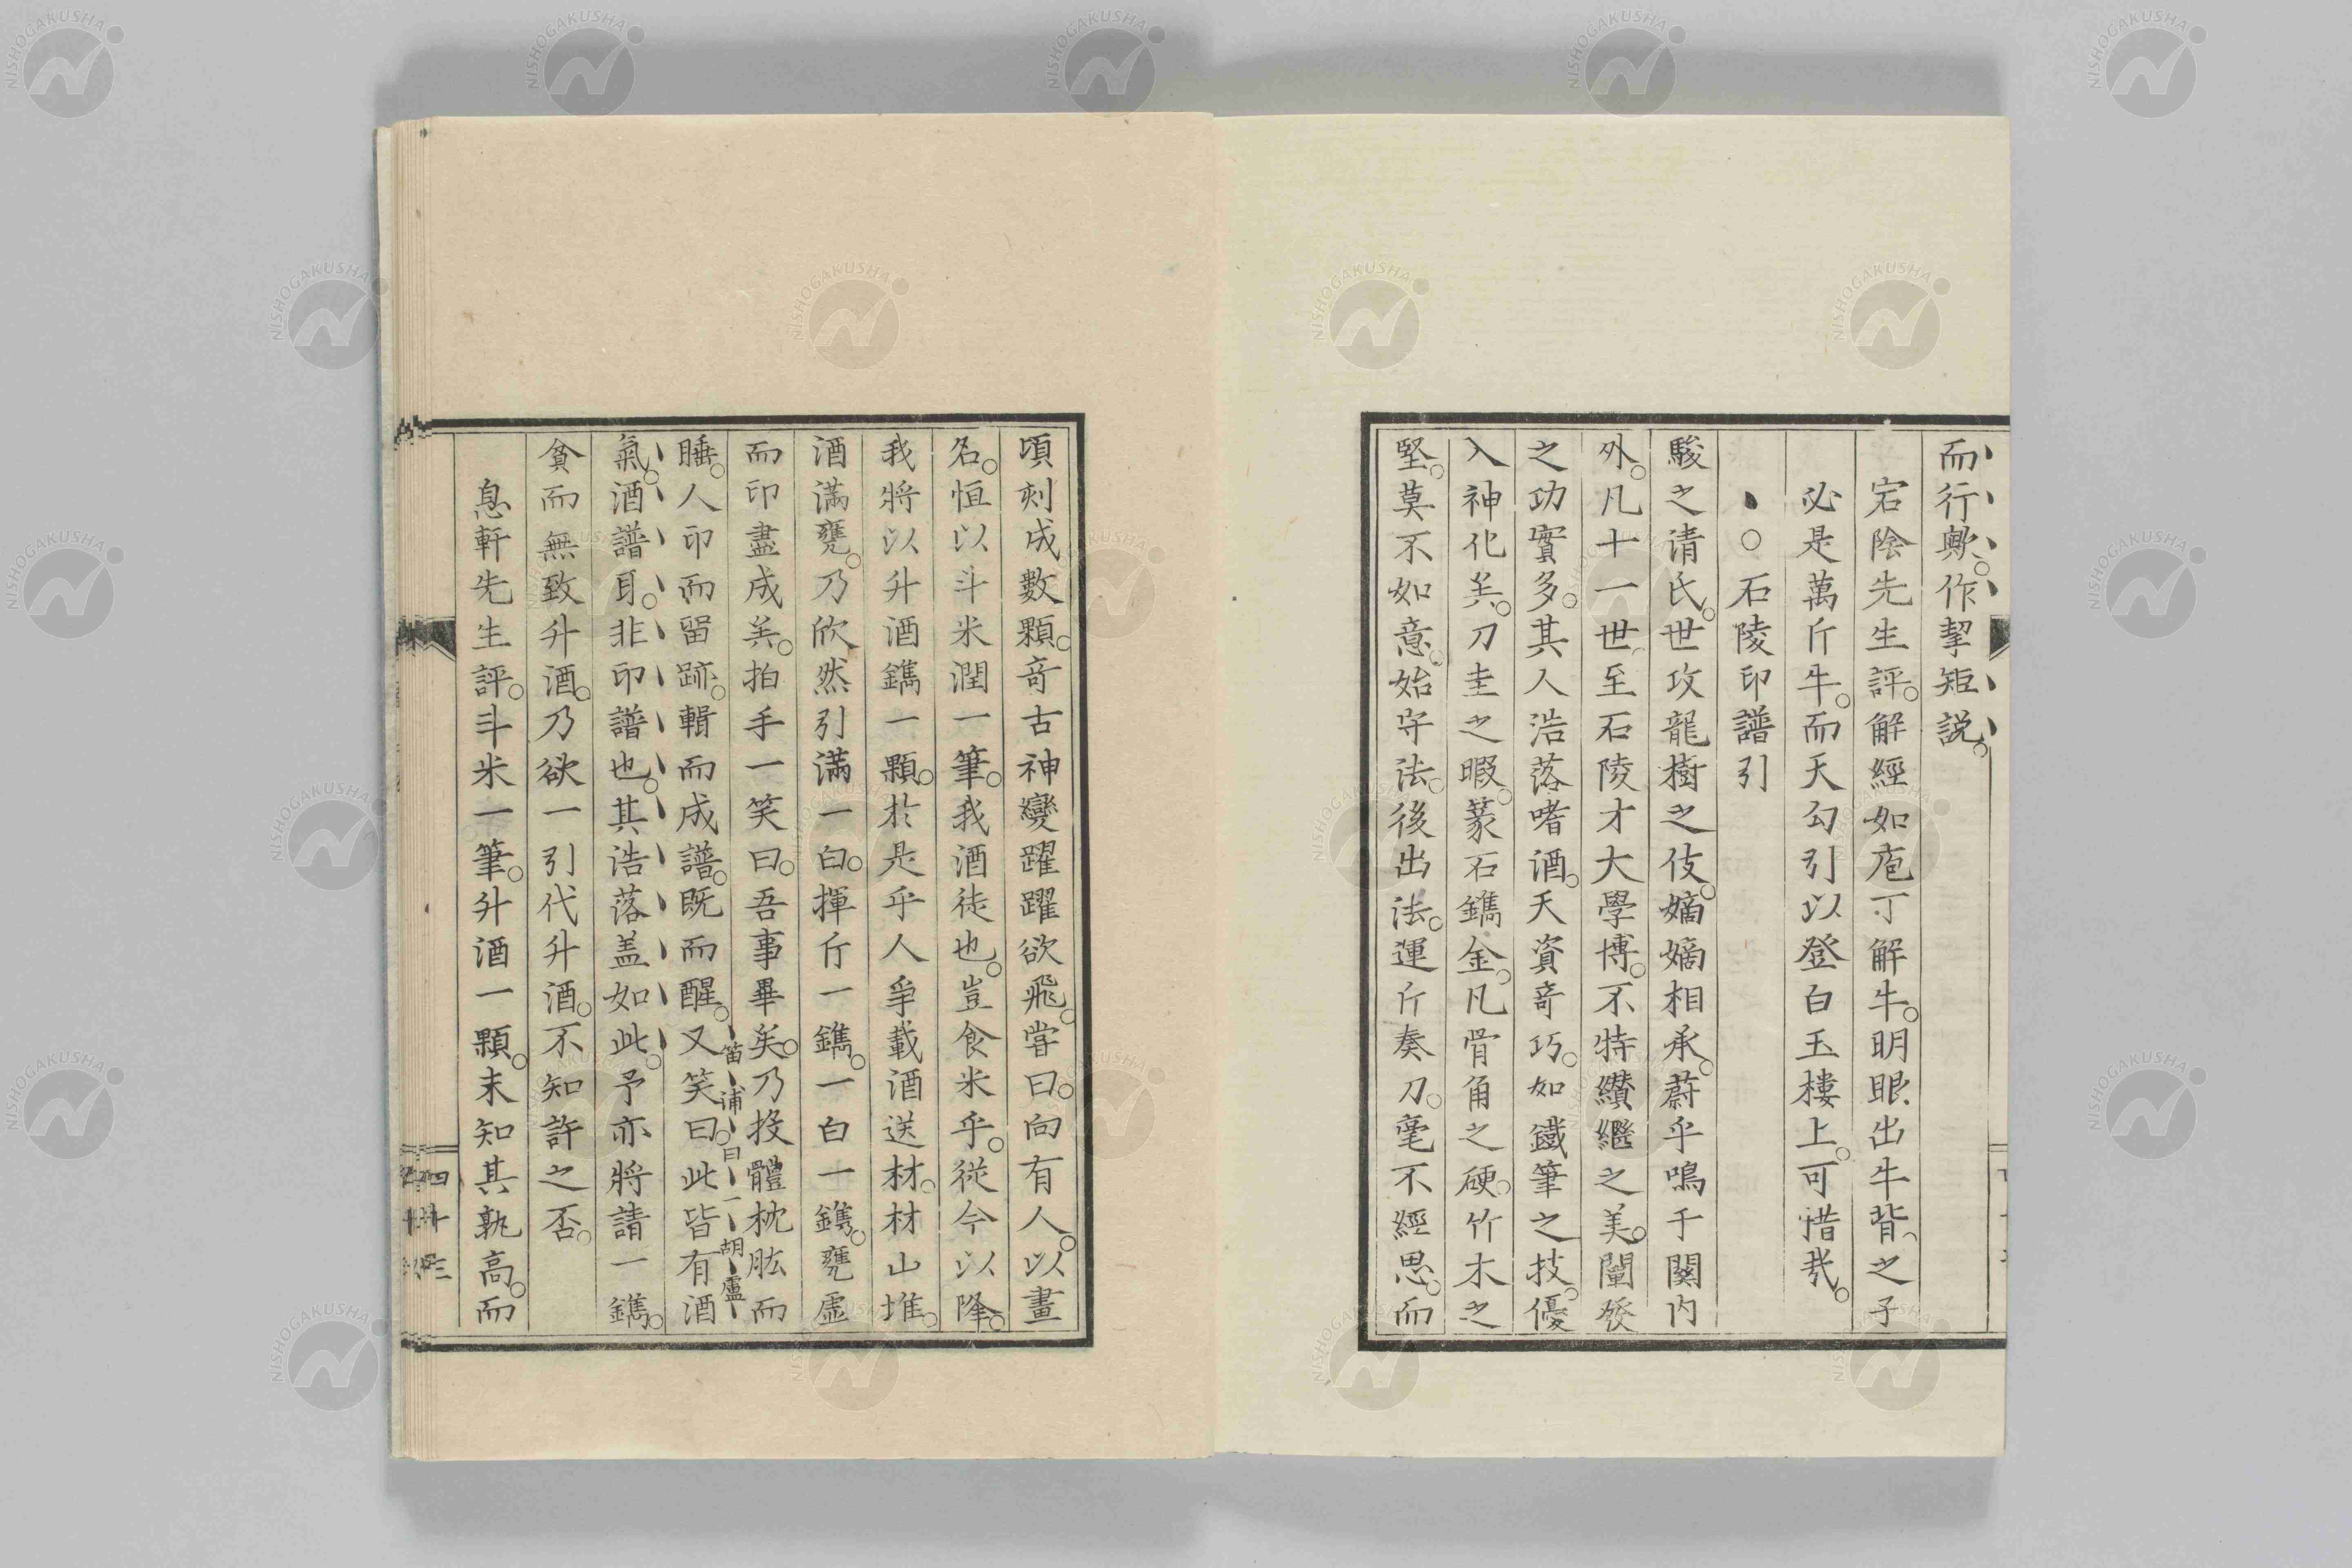 而行歟。作挈矩説。
宕陰先生評。解經如庖丁解牛。明眼出牛背之子
必是萬斤牛。而天勾引以登白玉樓上。可惜哉。
○石陵印譜引
駿之清氏。世攻龍樹之伎。嫡嫡相承。蔚乎鳴于關内
外。凡十一世。至石陵才大學博。不特纘繼之美。闡發
之功實多。其人浩落嗜酒。天資奇巧。如鐵筆之技。優
入神化矣。刀圭之暇。篆石鐫金。凡骨角之硬。竹木之
堅。莫不如意。始守法。後出法。運斤奏刀。毫不經思。而
頃刻成數顆。奇古神變躍躍欲飛。嘗曰。向有人。以畫
名。恒以斗米潤一筆。我酒徒也。豈食米乎。從今以降。
我將以升酒鐫一顆。於是乎人爭載酒送材。材山堆。
酒滿甕。乃欣然引滿一白。揮斤一鐫。一白一鐫。甕虛
而印盡成矣。拍手一笑曰。吾事畢矣。乃投體枕肱而
笛浦曰一胡盧
睡。人印而留跡。輯而成譜。既而醒。又笑曰。此皆有酒
氣。酒譜耳。非印譜也。其浩落盖如此。予亦將請一鐫。
貧而無致升酒。乃欲一引代升酒。不知許之否。
息軒先生評。斗米一筆。升酒一顆。未知其孰高。而
四十三
NISHOGAKUSHA